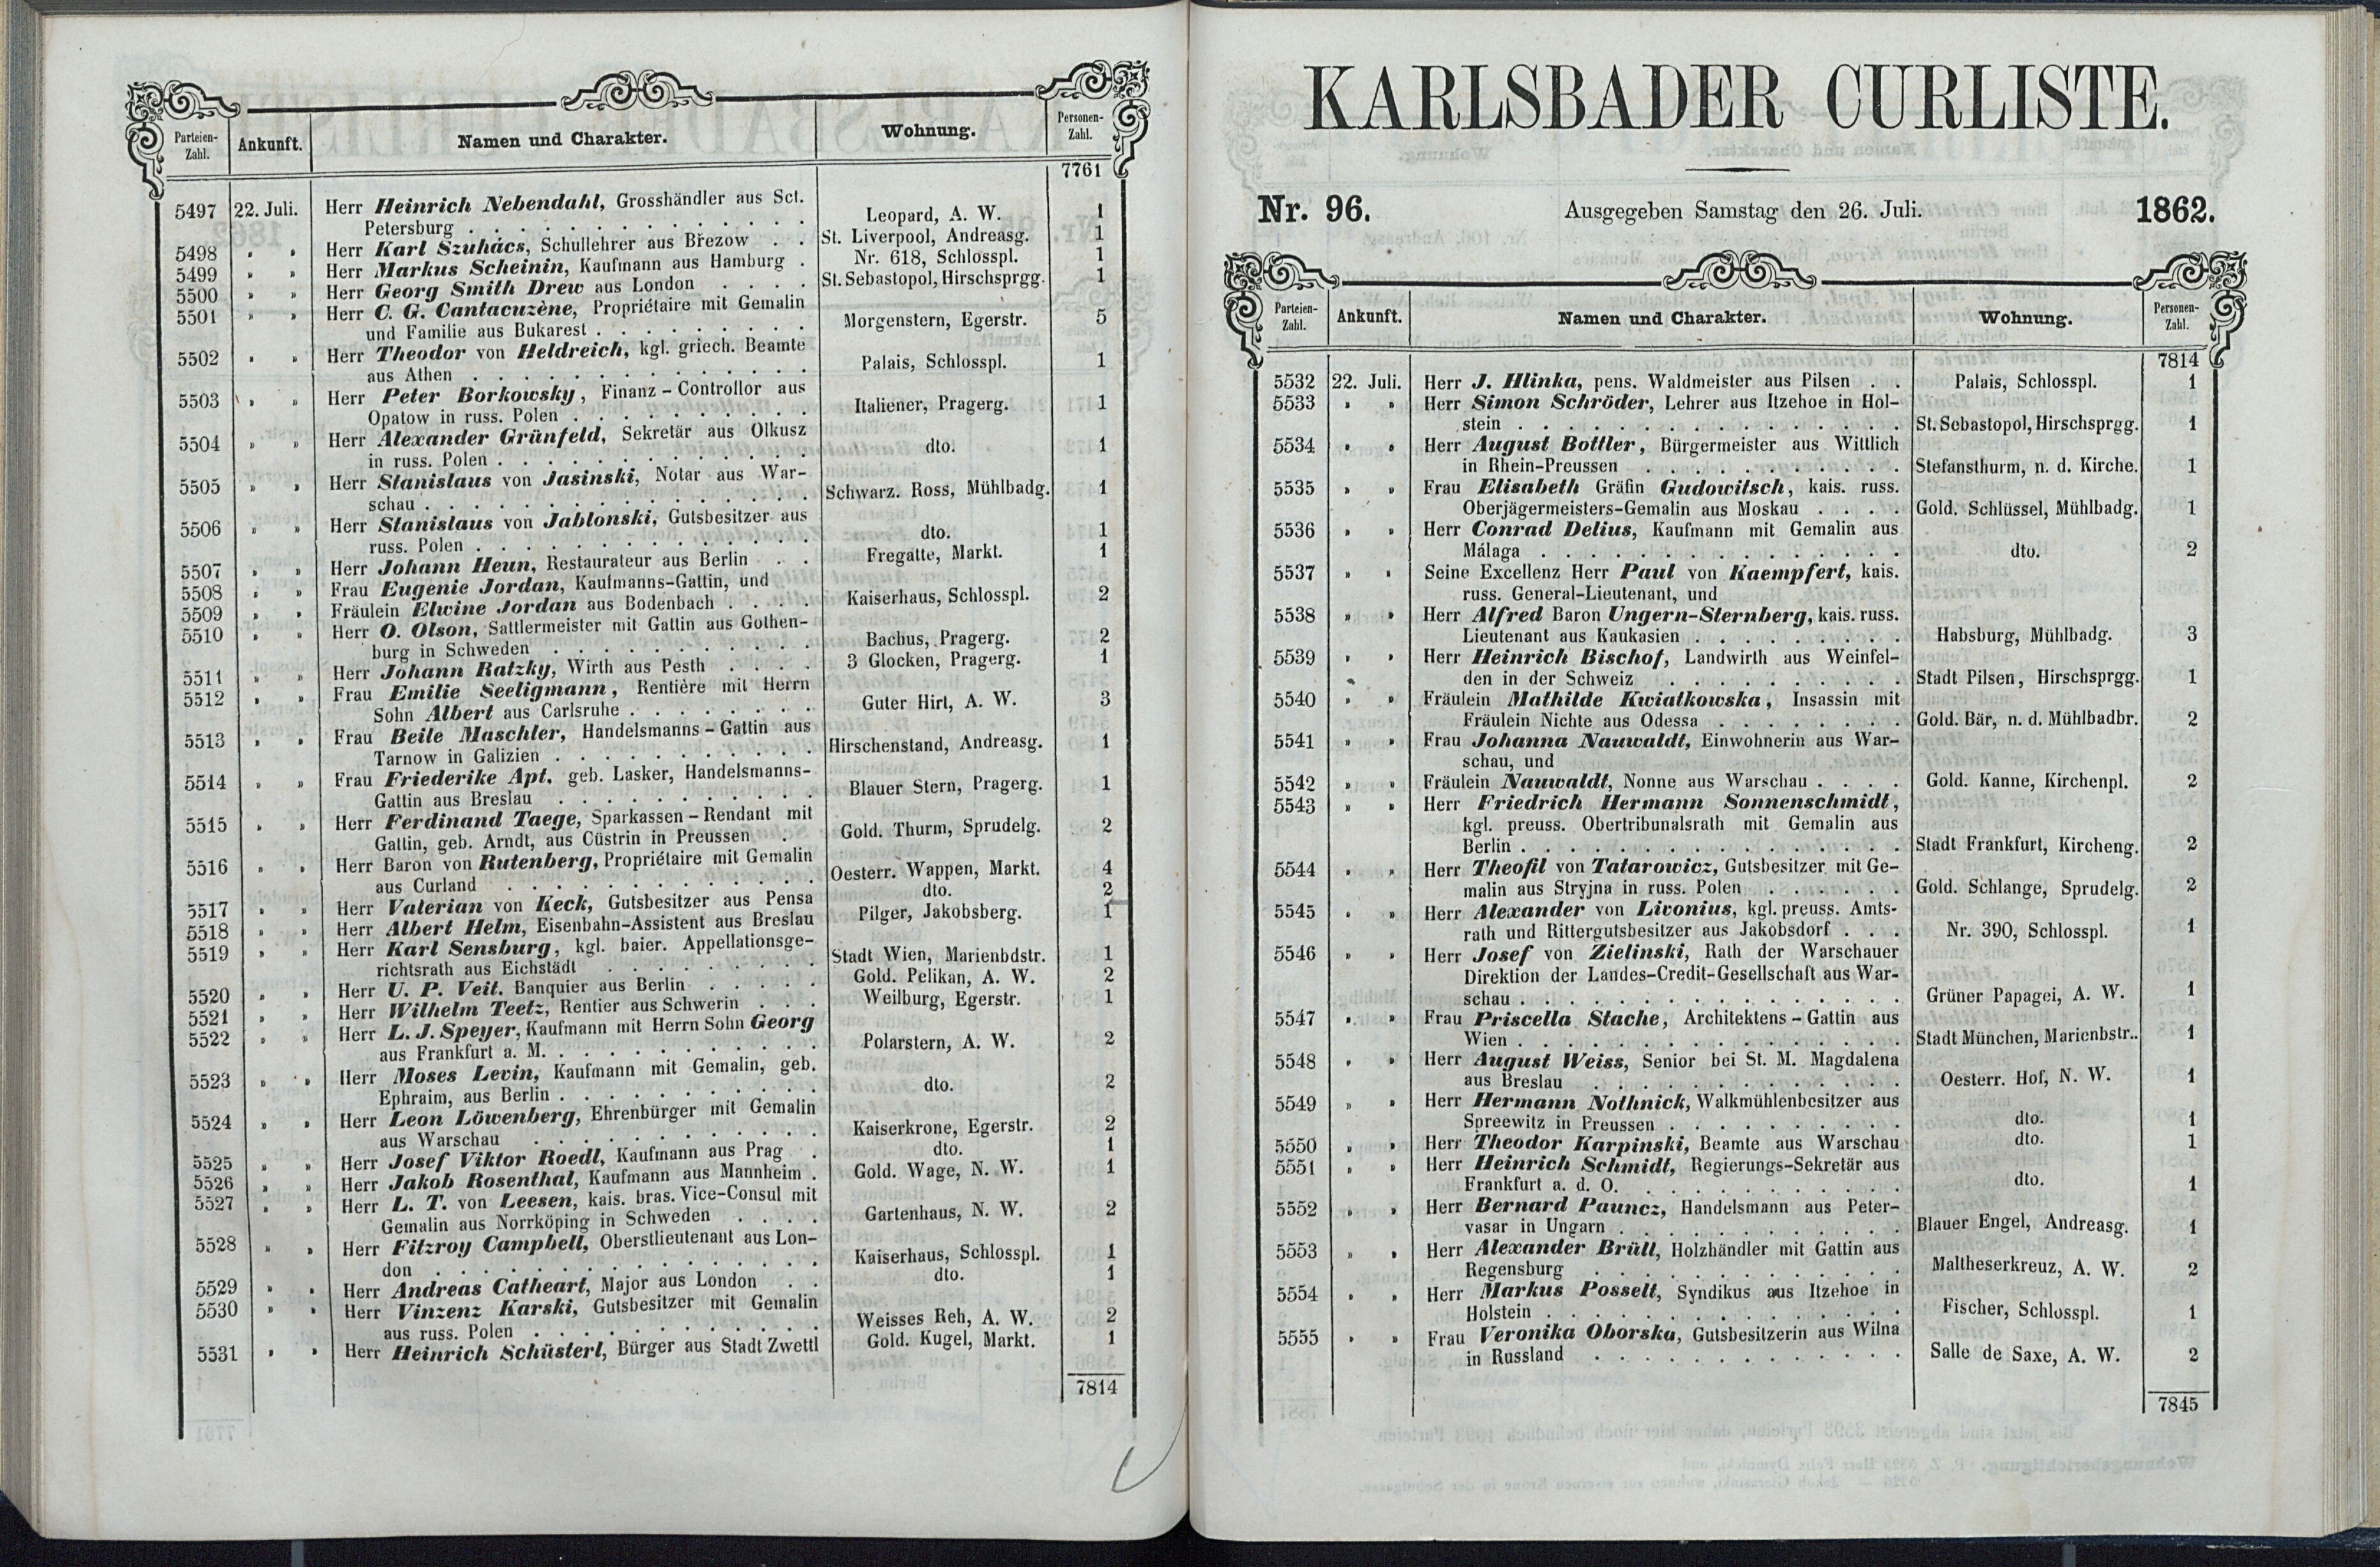 Parteien-Zahl. Ankunft. Namen und Charakter. Wohnung. Personen-Zahl.
7761
5497 22. Juli. Herr Heinrich Nebendahl, Grosshändler aus Sct.
Petersburg . . . Leopard, A. W. 1
5498 „ „ Herr Karl Szuhács, Schullehrer aus Březow . . St. Liverpool, Andreasg. 1
5499 „ „ Herr Markus Scheinin, Kaufmann aus Hamburg . Nr. 618, Schlosspl. 1
5500 „ „ Herr Georg Smith Drew aus London . . . . St. Sebastopol, Hirschsprgg. 1
5501 „ „ Herr C. G. Cantacuzène, Propriétaire mit Gemalin
und Familie aus Bukarest . . . Morgenstern, Egerstr. 5
5502 „ „ Herr Theodor von Heldreich, kgl. griech. Beamte
aus Athen . . . Palais, Schlosspl. 1
5503 „ „ Herr Peter Borkowsky, Finanz-Controllor aus
Opatow in russ. Polen . . . Italiener, Pragerg. 1
5504 „ „ Herr Alexander Grünfeld, Sekretär aus Olkusz
in russ. Polen . . . dto. 1
5505 „ „ Herr Stanislaus von Jasinski, Notar aus War-
schau . . . Schwarz. Ross, Mühlbadg. 1
5506 „ „ Herr Stanislaus von Jablonski, Gutsbesitzer aus
russ. Polen . . . dto. 1
5507 „ „ Herr Johann Heun, Restaurateur aus Berlin . . Fregatte, Markt. 1
5508 „ „ Frau Eugenie Jordan, Kaufmanns-Gattin, und
5509 „ „ Fräulein Elwine Jordan aus Bodenbach . . . . Kaiserhaus, Schlosspl. 2
5510 „ „ Herr O. Olson, Sattlermeister mit Gattin aus Gothen-
burg in Schweden . . . Bachus, Pragerg. 2
5511 „ „ Herr Johann Ratzky, Wirth aus Pesth . . . . 3 Glocken, Pragerg. 1
5512 „ „ Frau Emilie Seeligmann, Rentière mit Herrn
Sohn Albert aus Carlsruhe . . . Guter Hirt, A. W. 3
5513 „ „ Frau Beile Maschler, Handelsmanns-Gattin aus
Tarnow in Galizien . . . Hirschenstand, Andreasg. 1
5514 „ „ Frau Friederike Apt. geb. Lasker, Handelsmanns-
Gattin aus Breslau . . . Blauer Stern, Pragerg. 1
5515 „ „ Herr Ferdinand Taege, Sparkassen-Rendant mit
Gattin, geb. Arndt, aus Cüstrin in Preussen . Gold. Thurm, Sprudelg. 2
5516 „ „ Herr Baron von Rutenberg, Propriétaire mit Gemalin
aus Curland . . . Oesterr. Wappen, Markt. 4
5517 „ „ Herr Valerian von Keck, Gutsbesitzer aus Pensa dto. 2
5518 „ „ Herr Albert Helm, Eisenbahn-Assistent aus Breslau Pilger, Jakobsberg. 1
5519 „ „ Herr Karl Sensburg, kgl. baier. Appellationsge-
richtsrath aus Eichstädt . . . Stadt Wien, Marienbdstr. 1
5520 „ „ Herr U. P. Veit. Banquier aus Berlin . . . . . Gold. Pelikan, A. W. 2
5521 „ „ Herr Wilhelm Teetz, Rentier aus Schwerin . . . Weilburg, Egerstr. 1
5522 „ „ Herr L. J. Speyer, Kaufmann mit Herrn Sohn Georg
aus Frankfurt a. M. . . . Polarstern, A. W. 2
5523 „ „ Herr Moses Levin, Kaufmann mit Gemalin, geb.
Ephraim, aus Berlin . . . dto. 2
5524 „ „ Herr Leon Löwenberg, Ehrenbürger mit Gemalin
aus Warschau . . . Kaiserkrone, Egerstr. 2
5525 „ „ Herr Josef Viktor Roedl, Kaufmann aus Prag . dto. 1
5526 „ „ Herr Jakob Rosenthal, Kaufmann aus Mannheim . Gold. Wage, N. W. 1
5527 „ „ Herr L. T. von Leesen, kais. bras. Vice-Consul mit
Gemalin aus Norrköping in Schweden . . . . Gartenhaus, N. W. 2
5528 „ „ Herr Fitzroy Campbell, Oberstlieutenant aus Lon-
don . . . Kaiserhaus, Schlosspl. 1
5529 „ „ Herr Andreas Catheart, Major aus London . . dto. 1
5530 „ „ Herr Vinzenz Karski, Gutsbesitzer mit Gemalin
aus russ. Polen . . . Weisses Reh, A. W. 2
5531 „ „ Herr Heinrich Schüsterl, Bürger aus Stadt Zwettl Gold. Kugel, Markt. 1
7814
KARLSBADER CURLISTE.
Nr. 96. Ausgegeben Samstag den 26. Juli. 1862.
Parteien-Zahl. Ankunft. Namen und Charakter. Wohnung. Personen-Zahl.
7814
5532 22. Juli. Herr J. Hlinka, pens. Waldmeister aus Pilsen . . Palais, Schlosspl. 1
5533 „ „ Herr Simon Schröder, Lehrer aus Itzehoe in Hol-
stein . . . St. Sebastopol, Hirschsprgg. 1
5534 „ „ Herr August Bottler, Bürgermeister aus Wittlich
in Rhein-Preussen . . . Stefansthurm, n. d. Kirche. 1
5535 „ „ Frau Elisabeth Gräfin Gudowitsch, kais. russ.
Oberjägermeisters-Gemalin aus Moskau . . . . Gold. Schlüssel, Mühlbadg. 1
5536 „ „ Herr Conrad Delius, Kaufmann mit Gemalin aus
Málaga . . . dto. 2
5537 „ „ Seine Excellenz Herr Paul von Kaempfert, kais.
russ. General-Lieutenant, und
5538 „ „ Herr Alfred Baron Ungern-Sternberg, kais. russ.
Lieutenant aus Kaukasien . . . Habsburg, Mühlbadg. 3
5539 „ „ Herr Heinrich Bischof, Landwirth aus Weinfel-
den in der Schweiz . . . Stadt Pilsen, Hirschsprgg. 1
5540 „ „ Fräulein Mathilde Kwiatkowska, Insassin mit
Fräulein Nichte aus Odessa . . . Gold. Bär, n. d. Mühlbadbr. 2
5541 „ „ Frau Johanna Nauwaldt, Einwohnerin aus War-
schau, und
5542 „ „ Fräulein Nauwaldt, Nonne aus Warschau . . . . Gold. Kanne, Kirchenpl. 2
5543 „ „ Herr Friedrich Hermann Sonnenschmidt,
kgl. preuss. Obertribunalsrath mit Gemalin aus
Berlin . . . Stadt Frankfurt, Kircheng. 2
5544 „ „ Herr Theofil von Tatarowicz, Gutsbesitzer mit Ge-
malin aus Stryjna in russ. Polen . . . Gold. Schlange, Sprudelg. 2
5545 „ „ Herr Alexander von Livonius, kgl. preuss. Amts-
rath und Rittergutsbesitzer aus Jakobsdorf . . . Nr. 390, Schlosspl. 1
5546 „ „ Herr Josef von Zielinski, Rath der Warschauer
Direktion der Landes-Credit-Gesellschaft aus War-
schau . . . Grüner Papagei, A. W. 1
5547 „ „ Frau Priscella Stache, Architektens-Gattin aus
Wien . . . Stadt München, Marienbstr.. 1
5548 „ „ Herr August Weiss, Senior bei St. M. Magdalena
aus Breslau . . . Oesterr. Hof, N. W. 1
5549 „ „ Herr Hermann Nothnick, Walkmühlenbesitzer aus
Spreewitz in Preussen . . . dto. 1
5550 „ „ Herr Theodor Karpinski, Beamte aus Warschau dto. 1
5551 „ „ Herr Heinrich Schmidt, Regierungs-Sekretär aus
Frankfurt a. d. O. . . . dto. 1
5552 „ „ Herr Bernard Pauncz, Handelsmann aus Peter-
vasar in Ungarn . . . Blauer Engel, Andreasg. 1
5553 „ „ Herr Alexander Brüll, Holzhändler mit Gattin aus
Regensburg . . . Maltheserkreuz, A. W. 2
5554 „ „ Herr Markus Posselt, Syndikus aus Itzehoe in
Holstein . . . Fischer, Schlosspl. 1
5555 „ „ Frau Veronika Oborska, Gutsbesitzerin aus Wilna
in Russland . . . Salle de Saxe, A. W. 2
7845